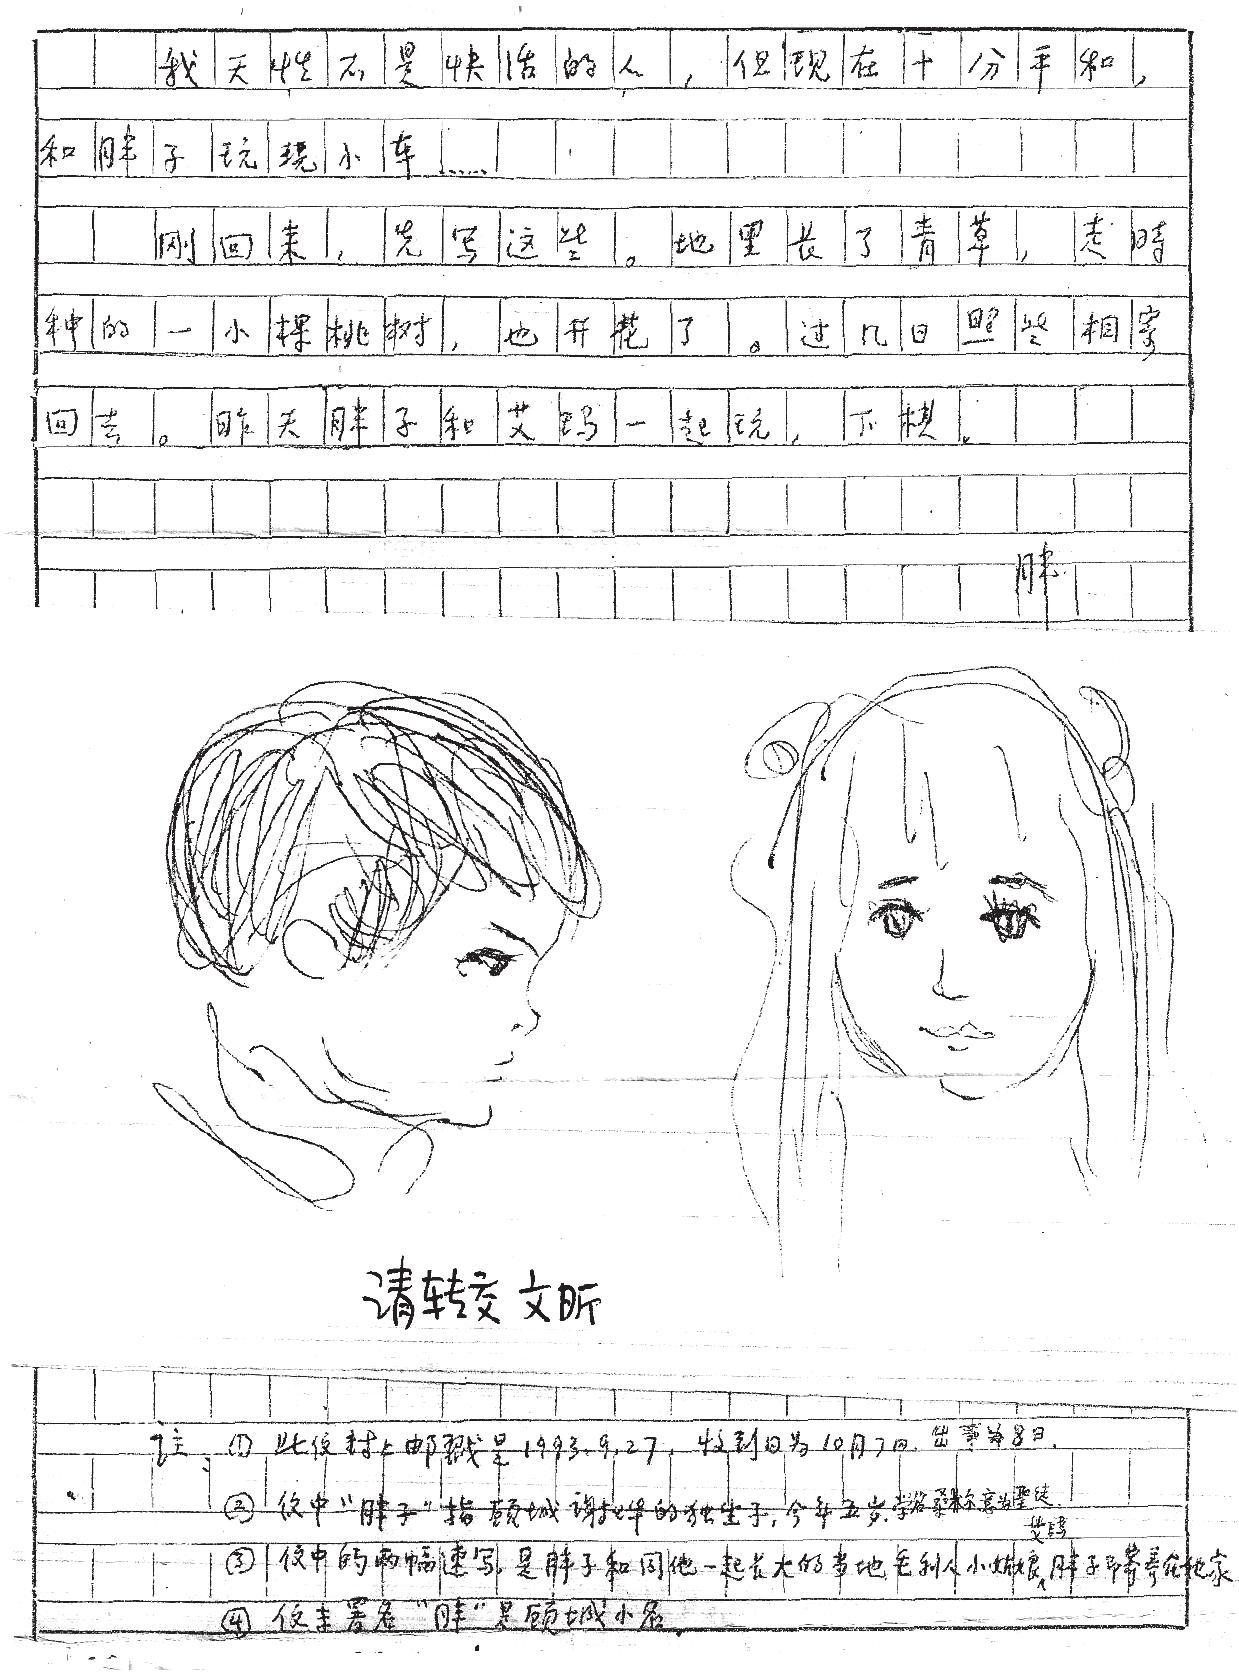 我天性不是快活的人，但现在十分平和，
和胖子玩玩小车……
刚回来，先写这些。地里长了青草，走時
种的一小棵桃树，也开花了。过几日照些相寄
回去。昨天胖子和艾玛一起玩，下棋。
胖
请转交 文昕
注：① 此信封上邮戳是1993.9.27，收到日为10月7日，出事为8日.
② 信中“胖子”指顾城谢烨的独生子，今年五岁.学名桑木尔意为圣徒
艾玛
③ 信中的两幅速写，是胖子和同他一起长大的当地毛利人小姑娘，胖子即寄养在她家
④ 信末署名“胖”是顾城小名.